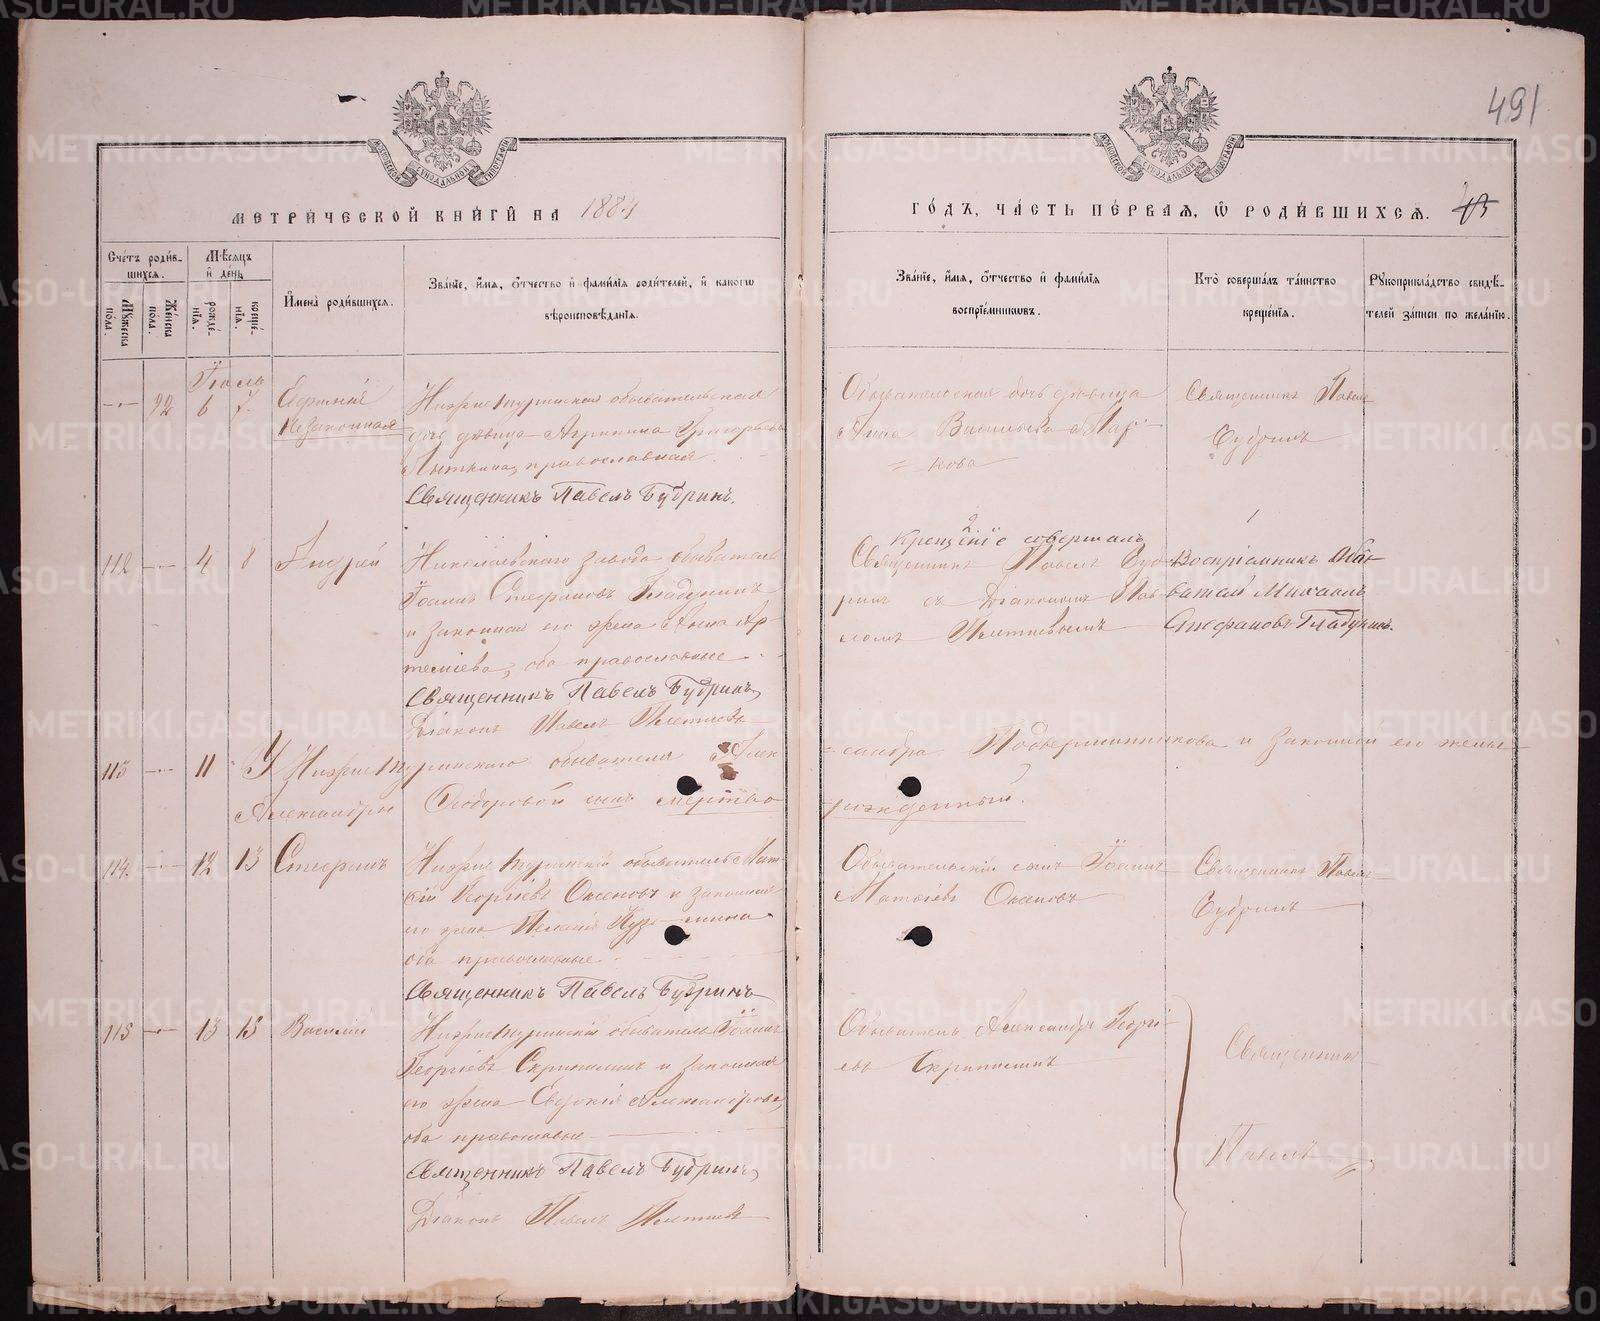 491
МЕТРИЧЕСКОЙ КНИГИ НА 1884
ГОДЪ, ЧАСТЬ ПЕРВАЯ, Ѡ РОДИВШИХСЯ.
Счетъ родив-
шихся.
Мѣсяцъ
и день
Мужеска пола.
Женска пола.
рожде-
нія.
креще-
нія.
Имена родившихся.
Званіе, имя, отчество и фамилія родителей, и какогѡ
вѣроисповѣданія.
Званіе, имя, отчество и фамилія
воспріемниковъ.
Кто совершалъ таинство
крещенія.
Рукоприкладство свидѣ-
телей записи по желанію.
Іюль
92 6 7
незаконная
Нижнетуринская обывательская
дочь дѣвица Агрипина Григорьева
православная
Священникъ Павелъ Будринъ.
Обывательская дочь дѣвица
Анна Васильева Мар-
кова
Священникъ Павелъ
Будринъ
112 4 8 Андрей
Николаевскаго завода обыватель
Іоаннъ Стефановъ Гладунинъ
и законная его жена Анна Ар-
темьева, оба православные
Священникъ Павелъ Будринъ,
Діаконъ Павелъ Плетневъ
2
Крещеніе совершалъ
Священникъ Павелъ Буд-
ринъ съ Діакономъ Пав-
ломъ Плетневымъ
1
Воспріемникъ Обы-
ватель Михаилъ
Стефановъ Гладунинъ.
113 11 У Нижнетуринскаго обывателя Алек-
сандра и законной его жены
Александры Ѳеодоровой сынъ мертво-
рожденный.
114. 12 13 Стефанъ
Нижнетуринскій обыватель Мат-
ѳій Георгіевъ Оксеновъ и законная
его жена Пелагія Кузьмина
оба православные
Священникъ Павелъ Будринъ
Обывательскій сынъ Іоаннъ
Матѳіевъ Оксеновъ
Священникъ Павелъ
Будринъ
115 13 15 Василій
Нижнетуринскій обыватель Іоаннъ
Георгіевъ Скрипишинъ и законная
его жена Евдокія Александрова,
оба православные
Священникъ Павелъ Будринъ,
Діаконъ Павелъ Плетневъ
Обыватель Александръ Георгі-
евъ Скрипишинъ
Священникъ
Павелъ
METRIKI.GASO-URAL.RU